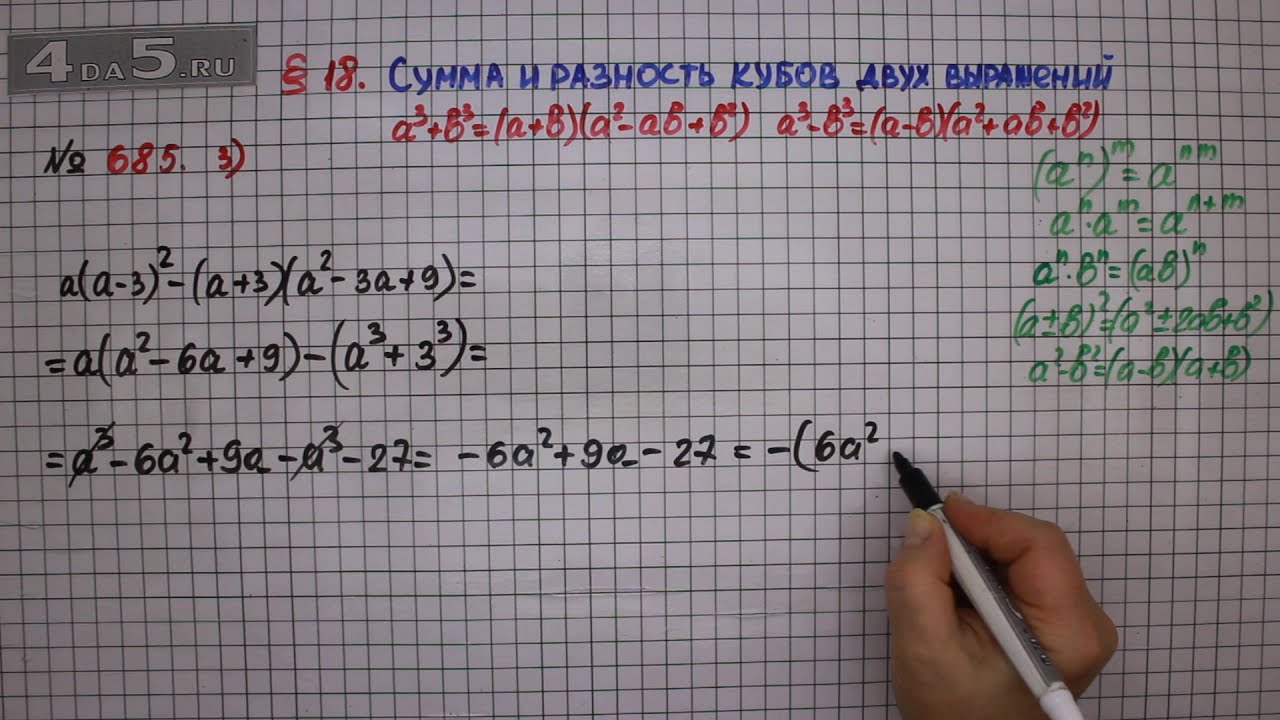 4DA5.RU
§ 18. Сумма и разность кубов двух выражений
a³+b³=(a+b)(a²-ab+b²) a³-b³=(a-b)(a²+ab+b²)
№ 685. 3)
(aⁿ)ᵐ=aⁿᵐ
aⁿ·aᵐ=aⁿ⁺ᵐ
aⁿ·bⁿ=(ab)ⁿ
(a±b)²=(a²±2ab+b²)
a²-b²=(a-b)(a+b)
a(a-3)²-(a+3)(a²-3a+9)=
=a(a²-6a+9)-(a³+3³)=
=a³-6a²+9a-a³-27= -6a²+9a-27=-(6a²